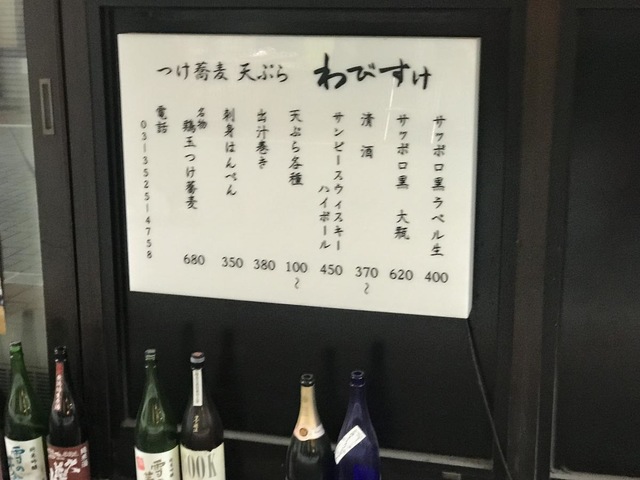 つけ蕎麦 天ぷら わびすけ
サッポロ黒ラベル生 400
サッポロ黒 大瓶 620
清酒 370〜
サンピースウィスキー
ハイボール 450
天ぷら各種 100〜
出汁巻き 380
刺身はんぺん 350
名物 鶏玉つけ蕎麦 680
電話 03-3525-4758
OOK